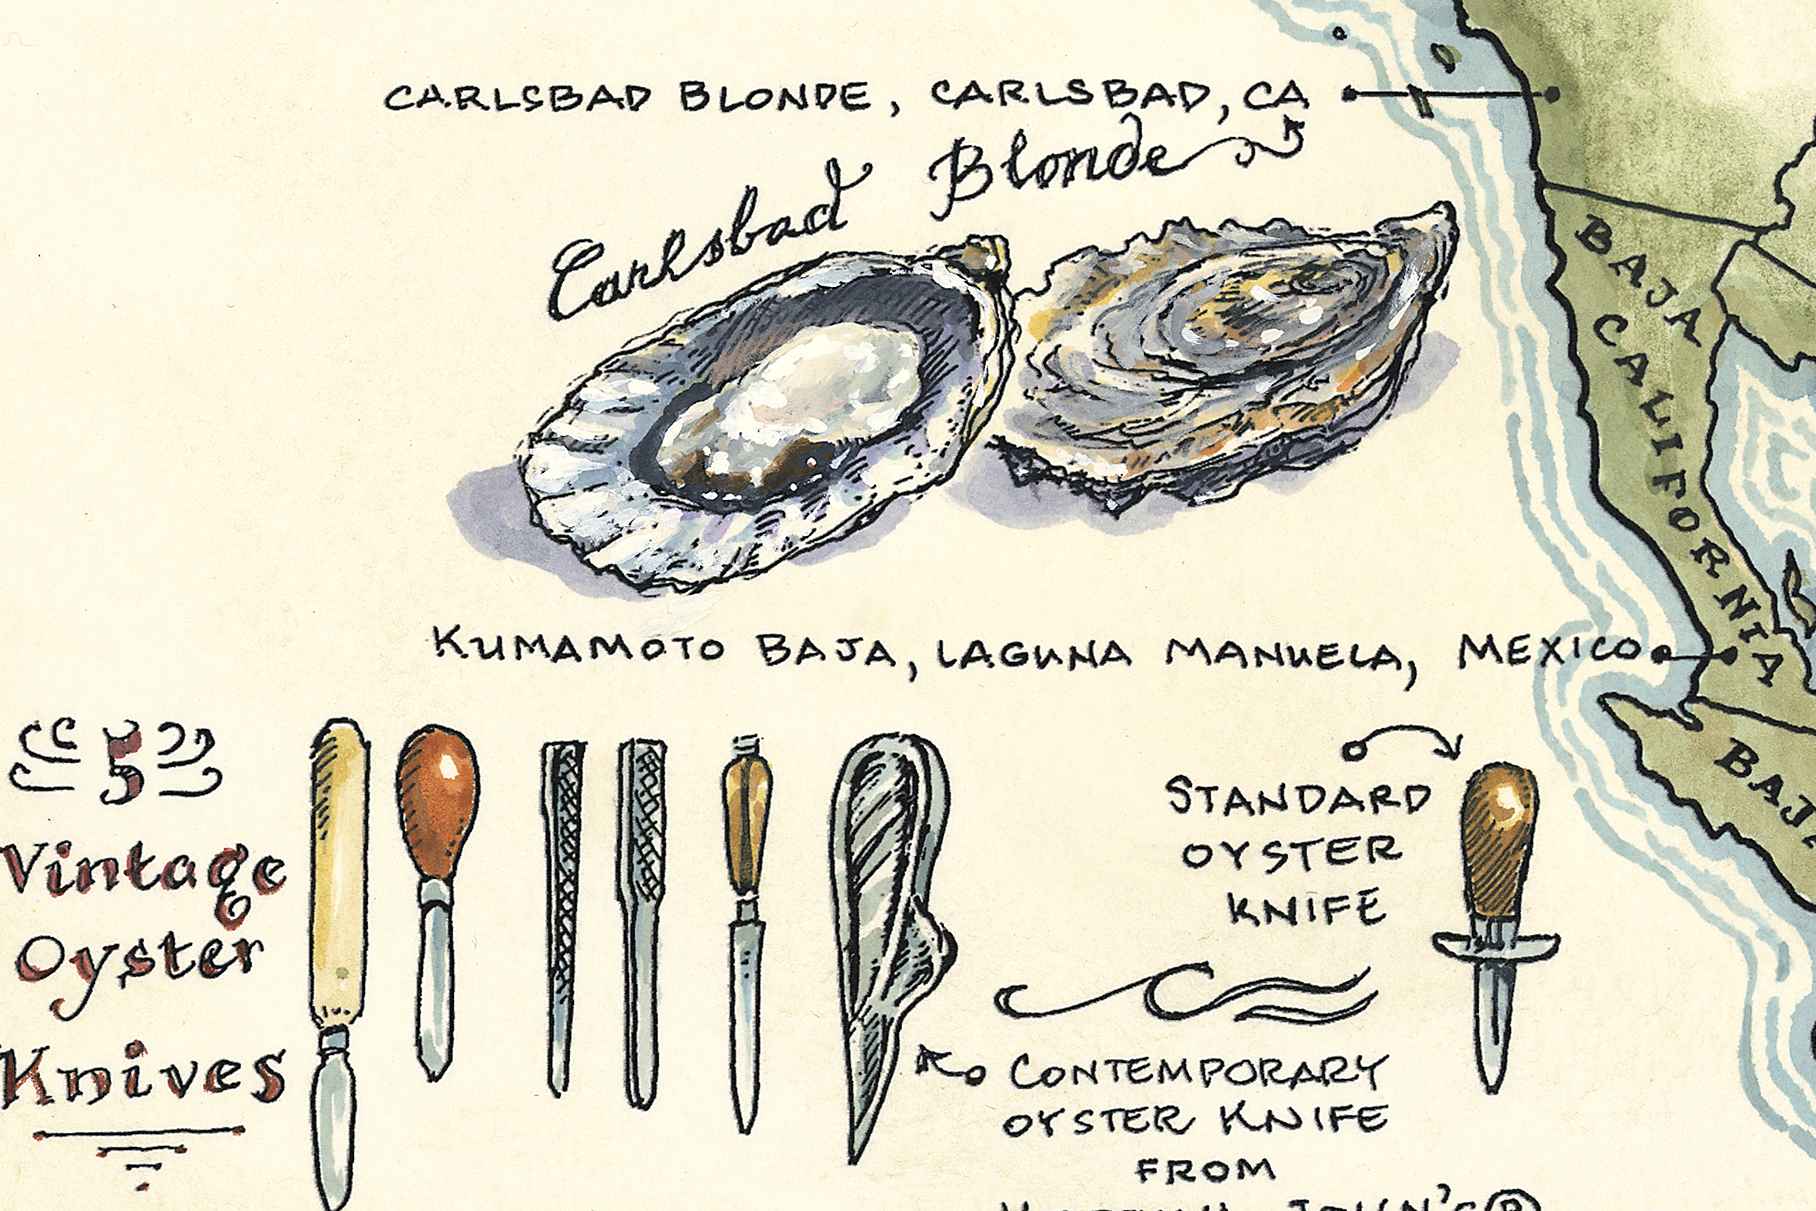 CARLSBAD BLONDE, CARLSBAD, CA
Carlsbad Blonde
BAJA CALIFORNIA
KUMAMOTO BAJA, LAGUNA MANUELA, MEXICO
BAJA
5
Vintage
Oyster
Knives
STANDARD
OYSTER
KNIFE
CONTEMPORARY
OYSTER KNIFE
FROM